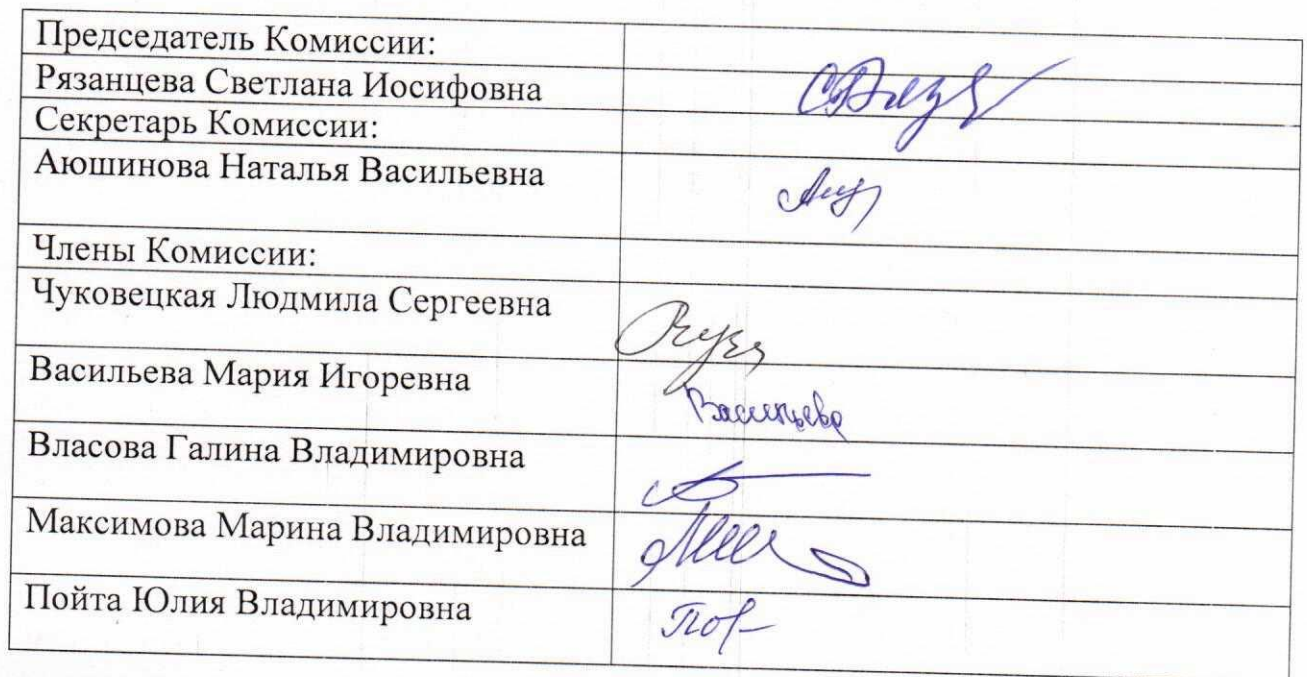 Председатель Комиссии:
Рязанцева Светлана Иосифовна
Секретарь Комиссии:
Аюшинова Наталья Васильевна
Члены Комиссии:
Чуковецкая Людмила Сергеевна
Васильева Мария Игоревна
Васильева
Власова Галина Владимировна
Максимова Марина Владимировна
Пойта Юлия Владимировна